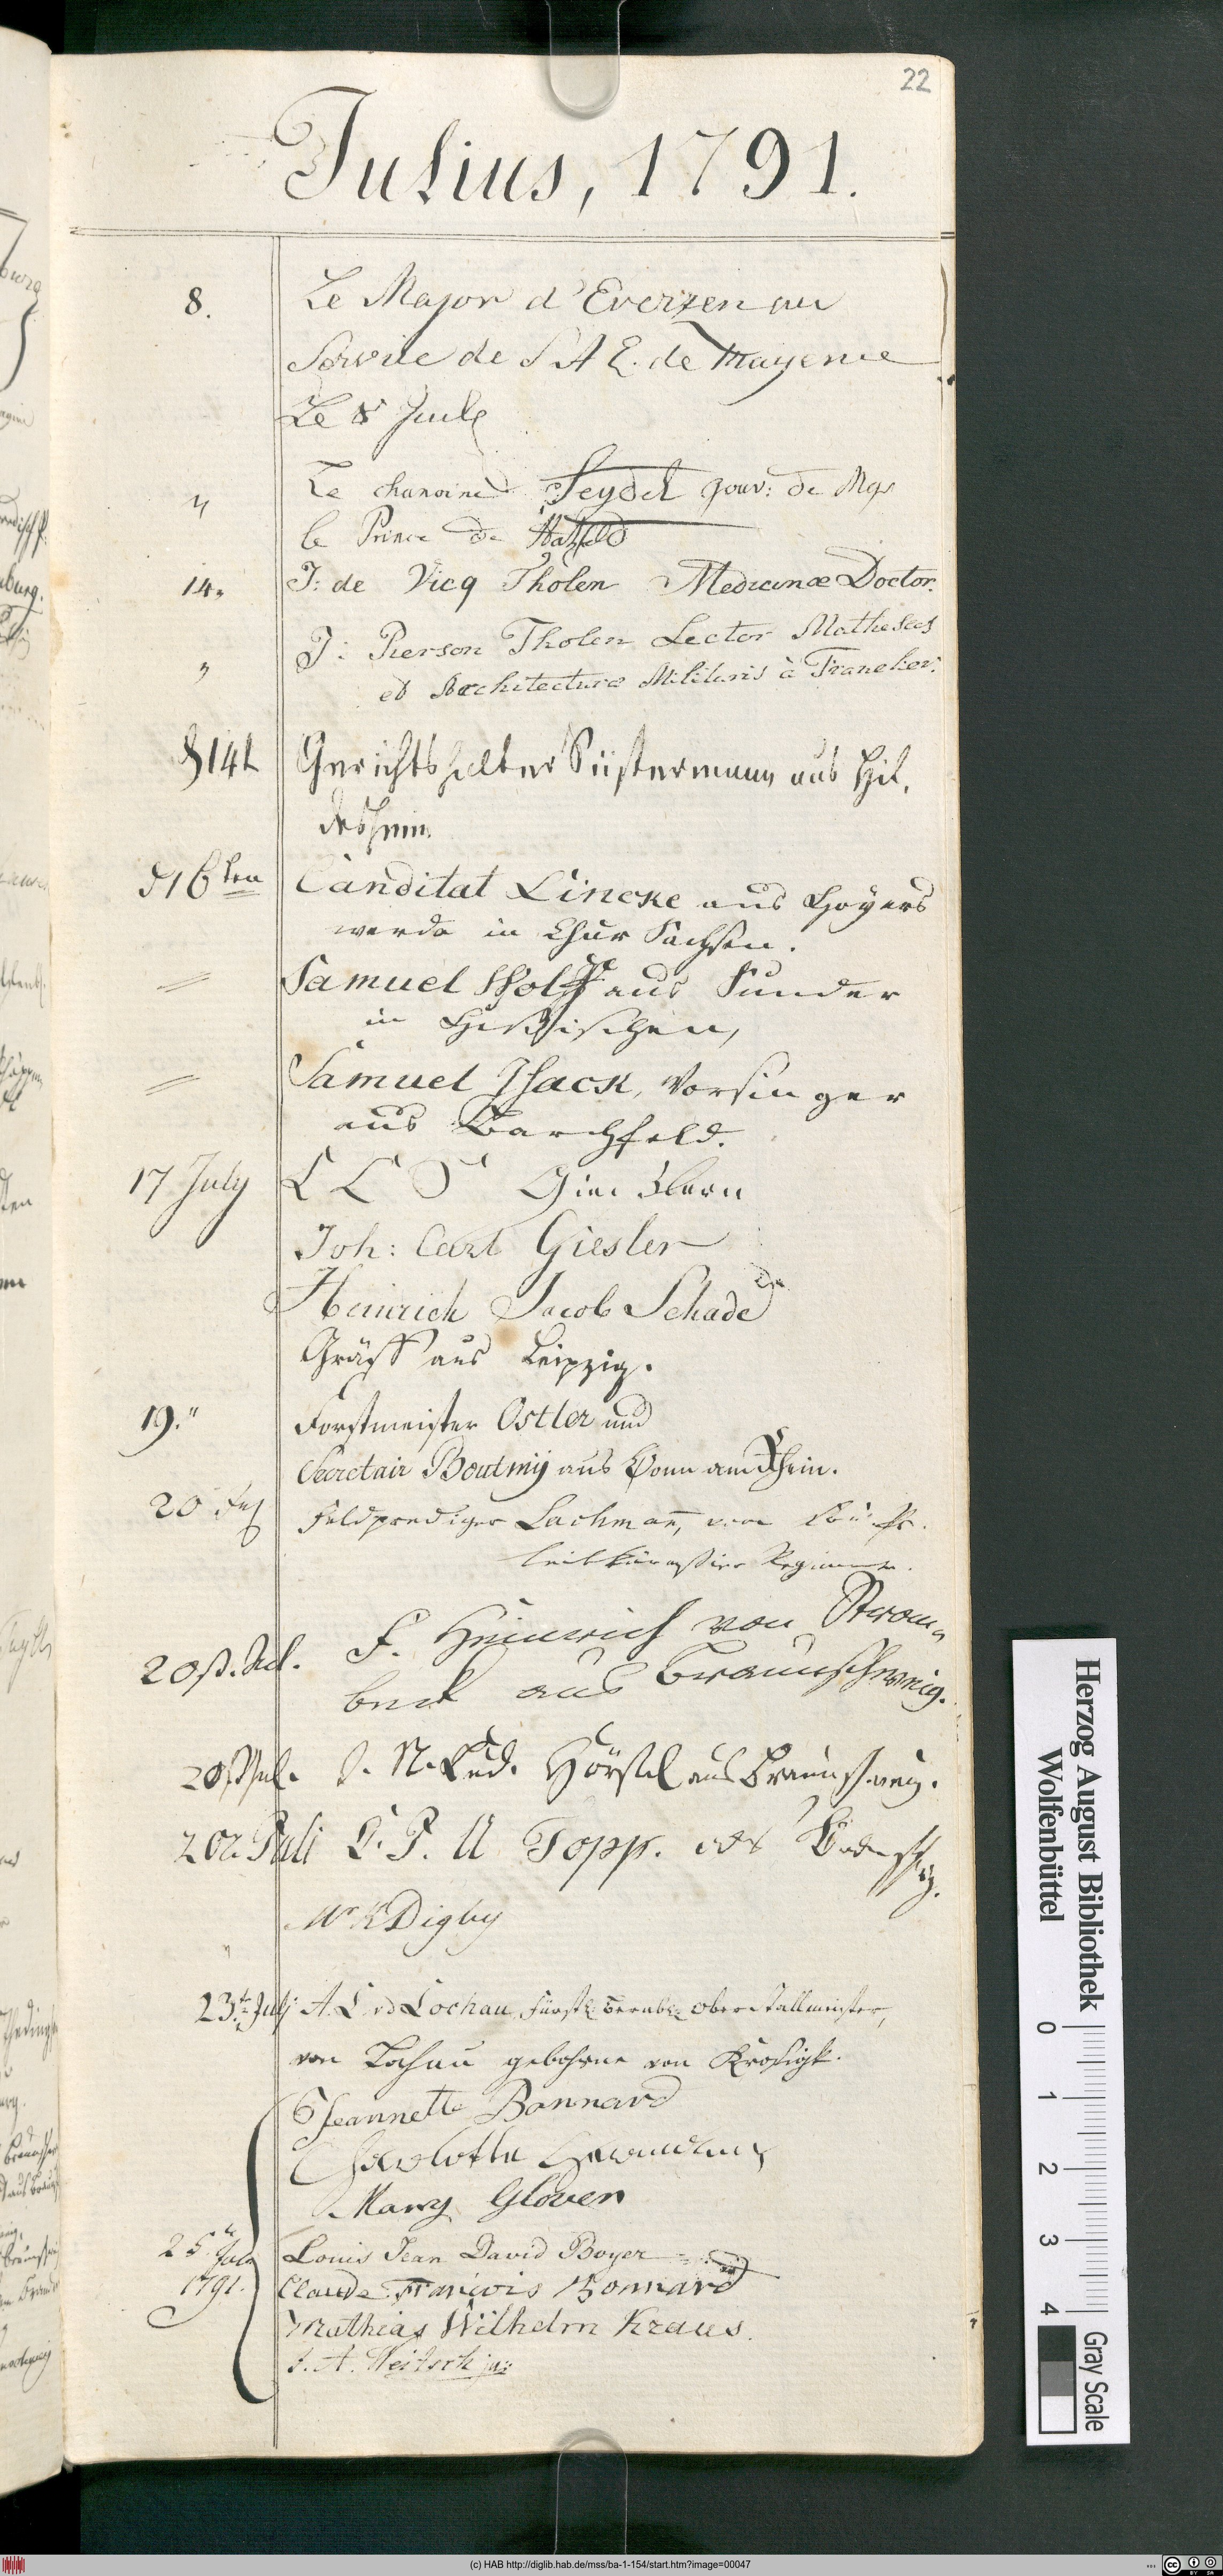 22
Julius, 1791.
8. Le Major d'Everzen au
Service de S A E. de Mayence
Le 8 Jule
" Le chanoine Seydel gouv: de Mgr
le Prince de Hatzfeld
14. J: de Vicq Tholen Medicinæ Doctor.
" J: Pierson Tholen Lector Matheseos
et Architecturæ Militaris à Franeker.
d 14t Gerichtshalter Süstermann aus Hil,
desheim.
d 16ten Canditat Lincke aus Hoyers
werda in Chur Sachsen.
= Samuel Wolff aus Sunder
in Hessischen,
= Samuel Isack, Vorsinger
aus Barchfeld.
17 July L L
Joh: Carl Giesler
Heinrich Jacob Schade
Gräff aus Leipzig.
19." Forstmeister Ostler und
Secretair Boutmij aus Bonn am Rhein.
20 Feldprediger Lachmann, vom
Leib Kürassier Regiment.
20 F. Heinrich von Strom-
beck aus Braunschweig.
20 Hörstel aus Braunschweig.
20 Juli L. P. U Topp.
Mr K Digby
23.t Julj A. L. v d Lochau, Fürstl. Bernb. Oberstallmeister,
von Lochau gebohrne von Krosigk.
Jeannette Bonnard
Charlotte
Mary Glover
25. July Louis Jean David Boyer
1791. Claude François Bonnard
Mathias Wilhelm Kraus.
F. A. Weitsch ju:
Herzog August Bibliothek
Wolfenbüttel
0 1 2 3 4
Gray Scale
(c) HAB http://diglib.hab.de/mss/ba-1-154/start.htm?image=00047